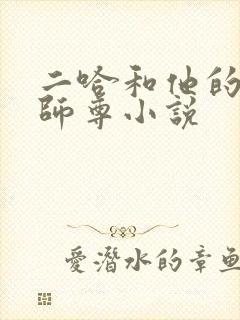 二哈和他的
師尊小説
愛潛水的章魚